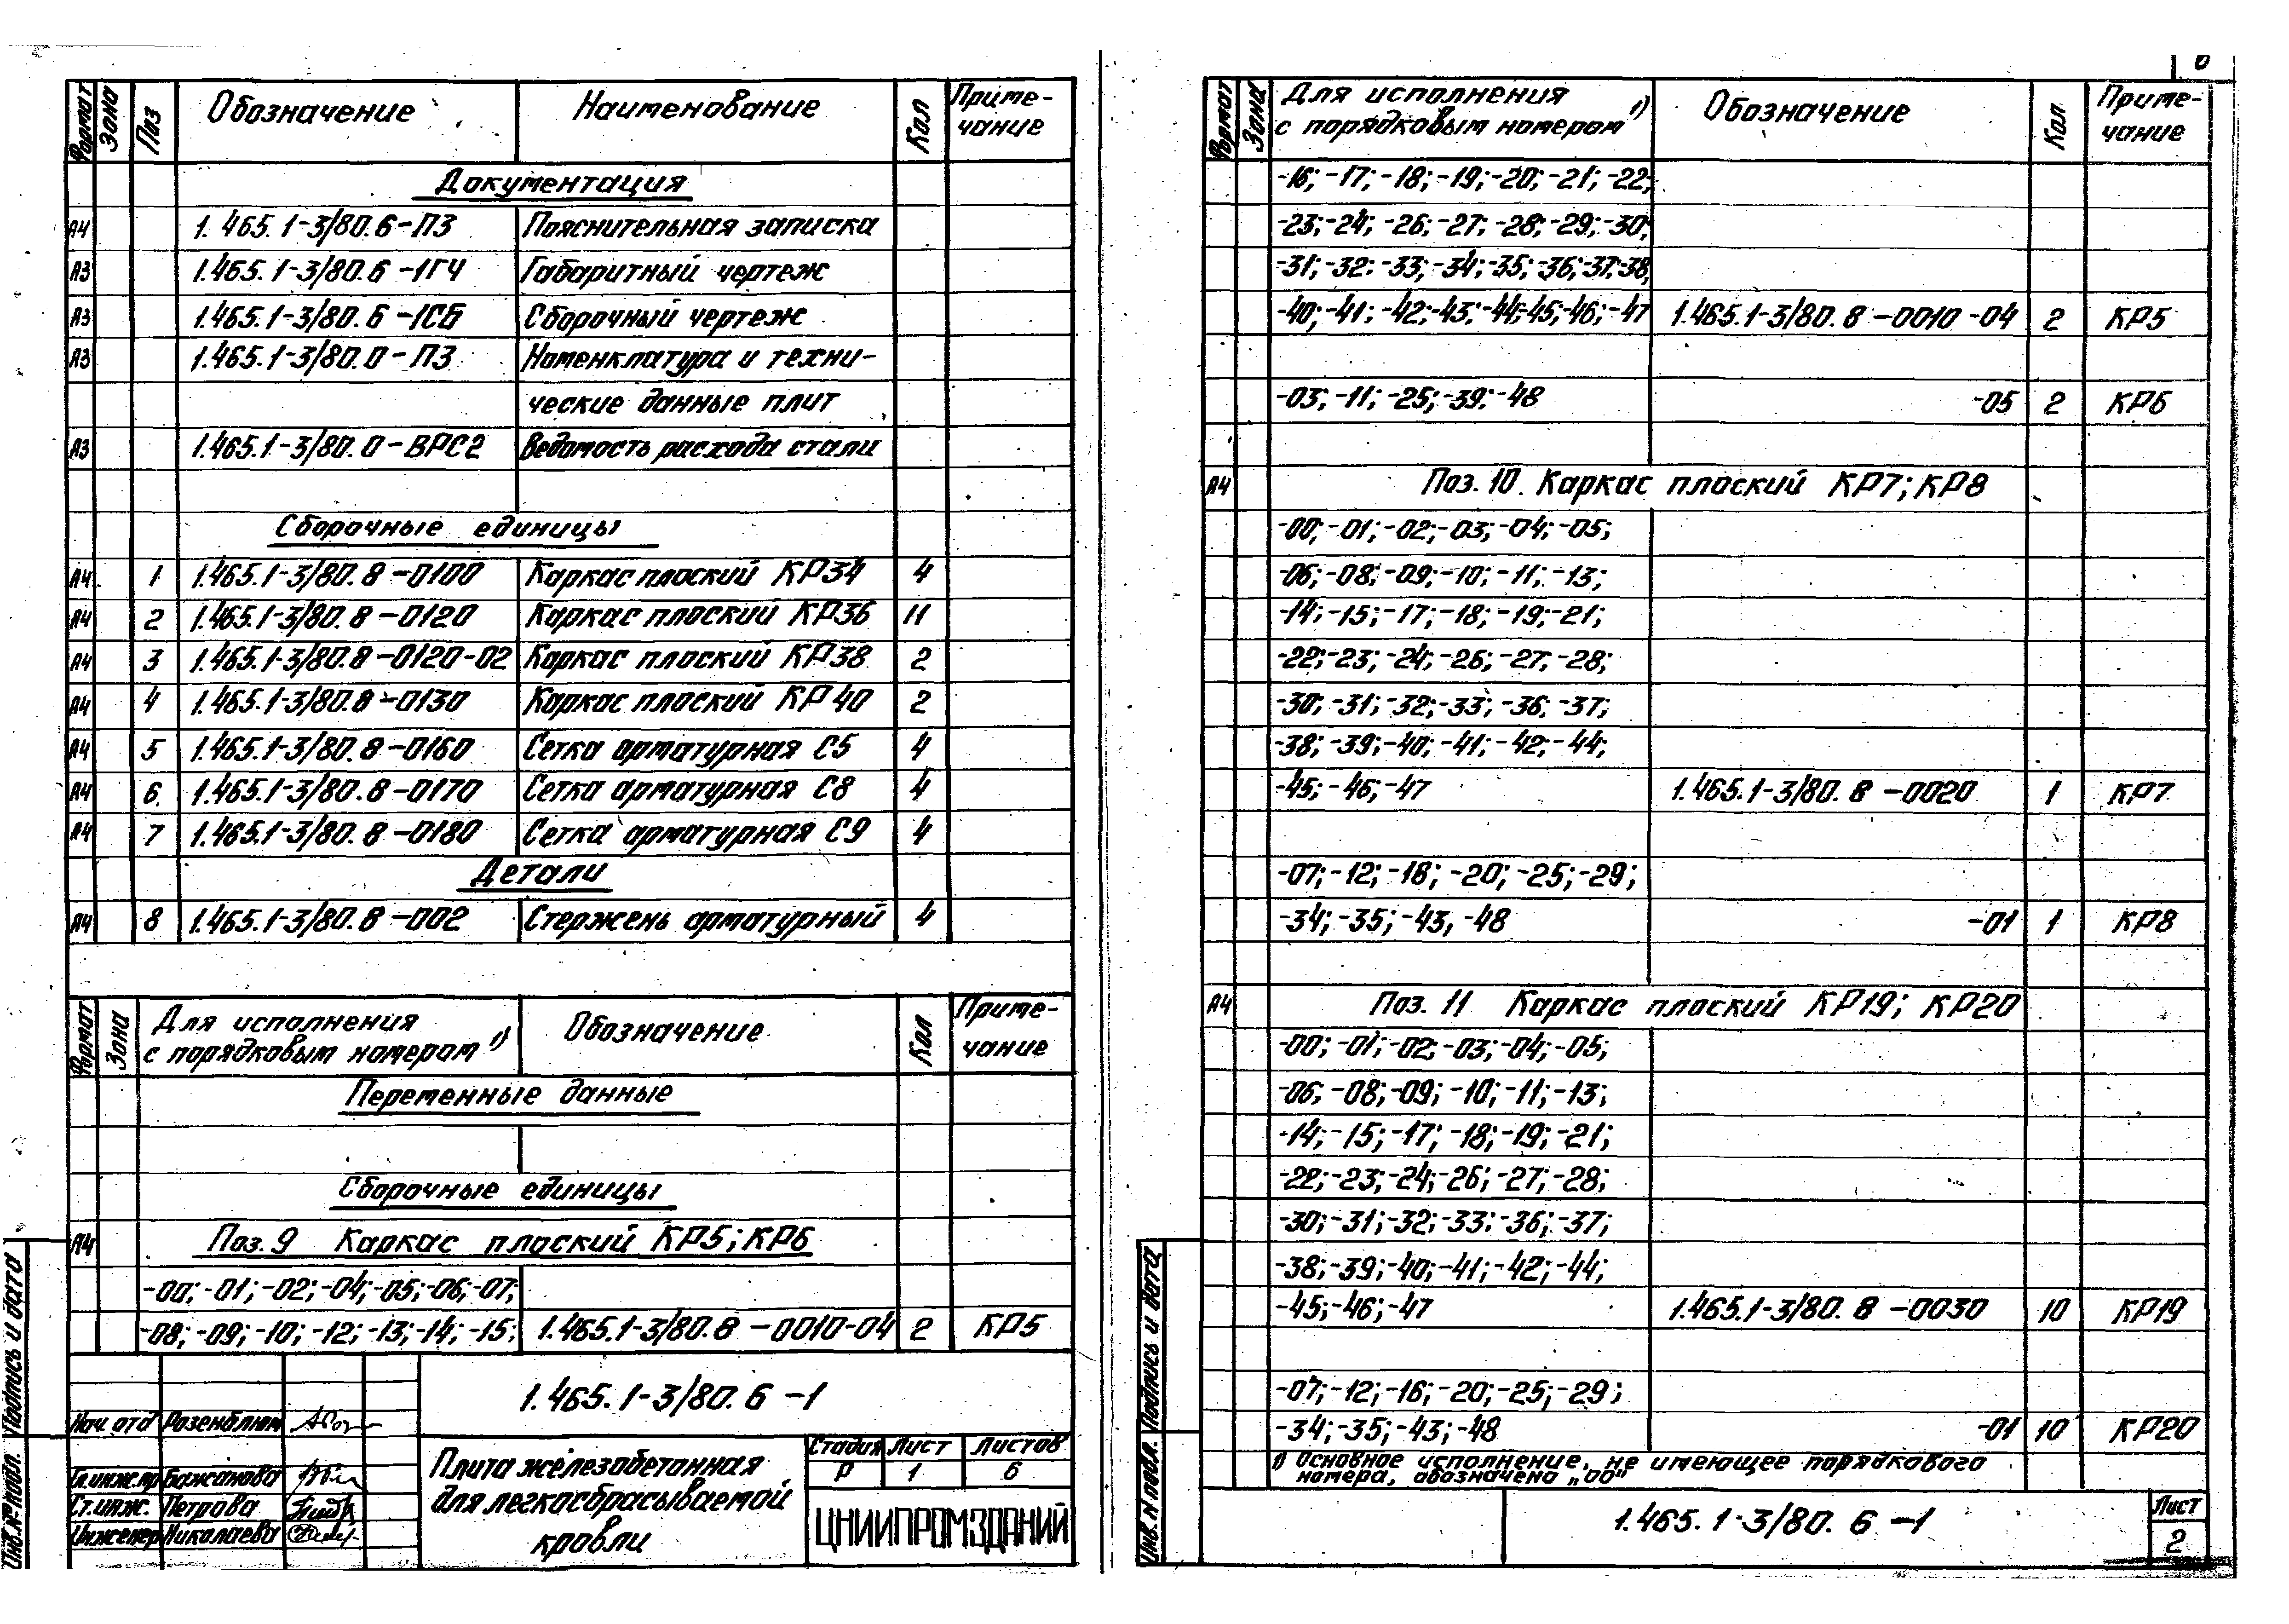 Формат Зона Поз Обозначение Наименование Кол Приме-
чание
Документация
А4 1.465.1-3/80.6-ПЗ Пояснительная записка
А3 1.465.1-3/80.6-1ГЧ Габаритный чертеж
А3 1.465.1-3/80.6-1СБ Сборочный чертеж
А3 1.465.1-3/80.0-ПЗ Номенклатура и техни-
ческие данные плит
А3 1.465.1-3/80.0-ВРС2 Ведомость расхода стали
Сборочные единицы
А4 1 1.465.1-3/80.8-0100 Каркас плоский КР34 4
А4 2 1.465.1-3/80.8-0120 Каркас плоский КР36 11
А4 3 1.465.1-3/80.8-0120-02 Каркас плоский КР38 2
А4 4 1.465.1-3/80.8-0130 Каркас плоский КР40 2
А4 5 1.465.1-3/80.8-0160 Сетка арматурная С5 4
А4 6 1.465.1-3/80.8-0170 Сетка арматурная С8 4
А4 7 1.465.1-3/80.8-0180 Сетка арматурная С9 4
Детали
А4 8 1.465.1-3/80.8-002 Стержень арматурный 4
Формат Зона Для исполнения
с порядковым номером 1) Обозначение Кол Приме-
чание
Переменные данные
Сборочные единицы
А4 Поз. 9 Каркас плоский КР5; КР6
-00; -01; -02; -04; -05; -06; -07;
-08; -09; -10; -12; -13; -14; -15; 1.465.1-3/80.8-0010-04 2 КР5
1.465.1-3/80.6-1
Нач. отд Розенблюм
Гл.инж.пр Бажанова
Ст.инж. Петрова
Инженер Николаева
Плита железобетонная
для легкосбрасываемой
кровли
Стадия Лист Листов
Р 1 6
ЦНИИПРОМЗДАНИЙ
Инв.№ подл. Подпись и дата
Формат Зона Для исполнения
с порядковым номером 1) Обозначение Кол Приме-
чание
-16; -17; -18; -19; -20; -21; -22;
-23; -24; -26; -27; -28; -29; -30;
-31; -32; -33; -34; -35; -36; -37; -38;
-40; -41; -42; -43; -44; -45; -46; -47 1.465.1-3/80.8-0010-04 2 КР5
-03; -11; -25; -39; -48 -05 2 КР6
А4 Поз. 10. Каркас плоский КР7; КР8
-00; -01; -02; -03; -04; -05;
-06; -08; -09; -10; -11; -13;
-14; -15; -17; -18; -19; -21;
-22; -23; -24; -26; -27; -28;
-30; -31; -32; -33; -36; -37;
-38; -39; -40; -41; -42; -44;
-45; -46; -47 1.465.1-3/80.8-0020 1 КР7
-07; -12; -16; -20; -25; -29;
-34; -35; -43, -48 -01 1 КР8
А4 Поз. 11 Каркас плоский КР19; КР20
-00; -01; -02; -03; -04; -05;
-06; -08; -09; -10; -11; -13;
-14; -15; -17; -18; -19; -21;
-22; -23; -24; -26; -27; -28;
-30; -31; -32; -33; -36; -37;
-38; -39; -40; -41; -42; -44;
-45; -46; -47 1.465.1-3/80.8-0030 10 КР19
-07; -12; -16; -20; -25; -29;
-34; -35; -43; -48 -01 10 КР20
1) Основное исполнение, не имеющее порядкового
номера, обозначено „00"
1.465.1-3/80.6-1
Лист
2
Инв. N подл. Подпись и дата